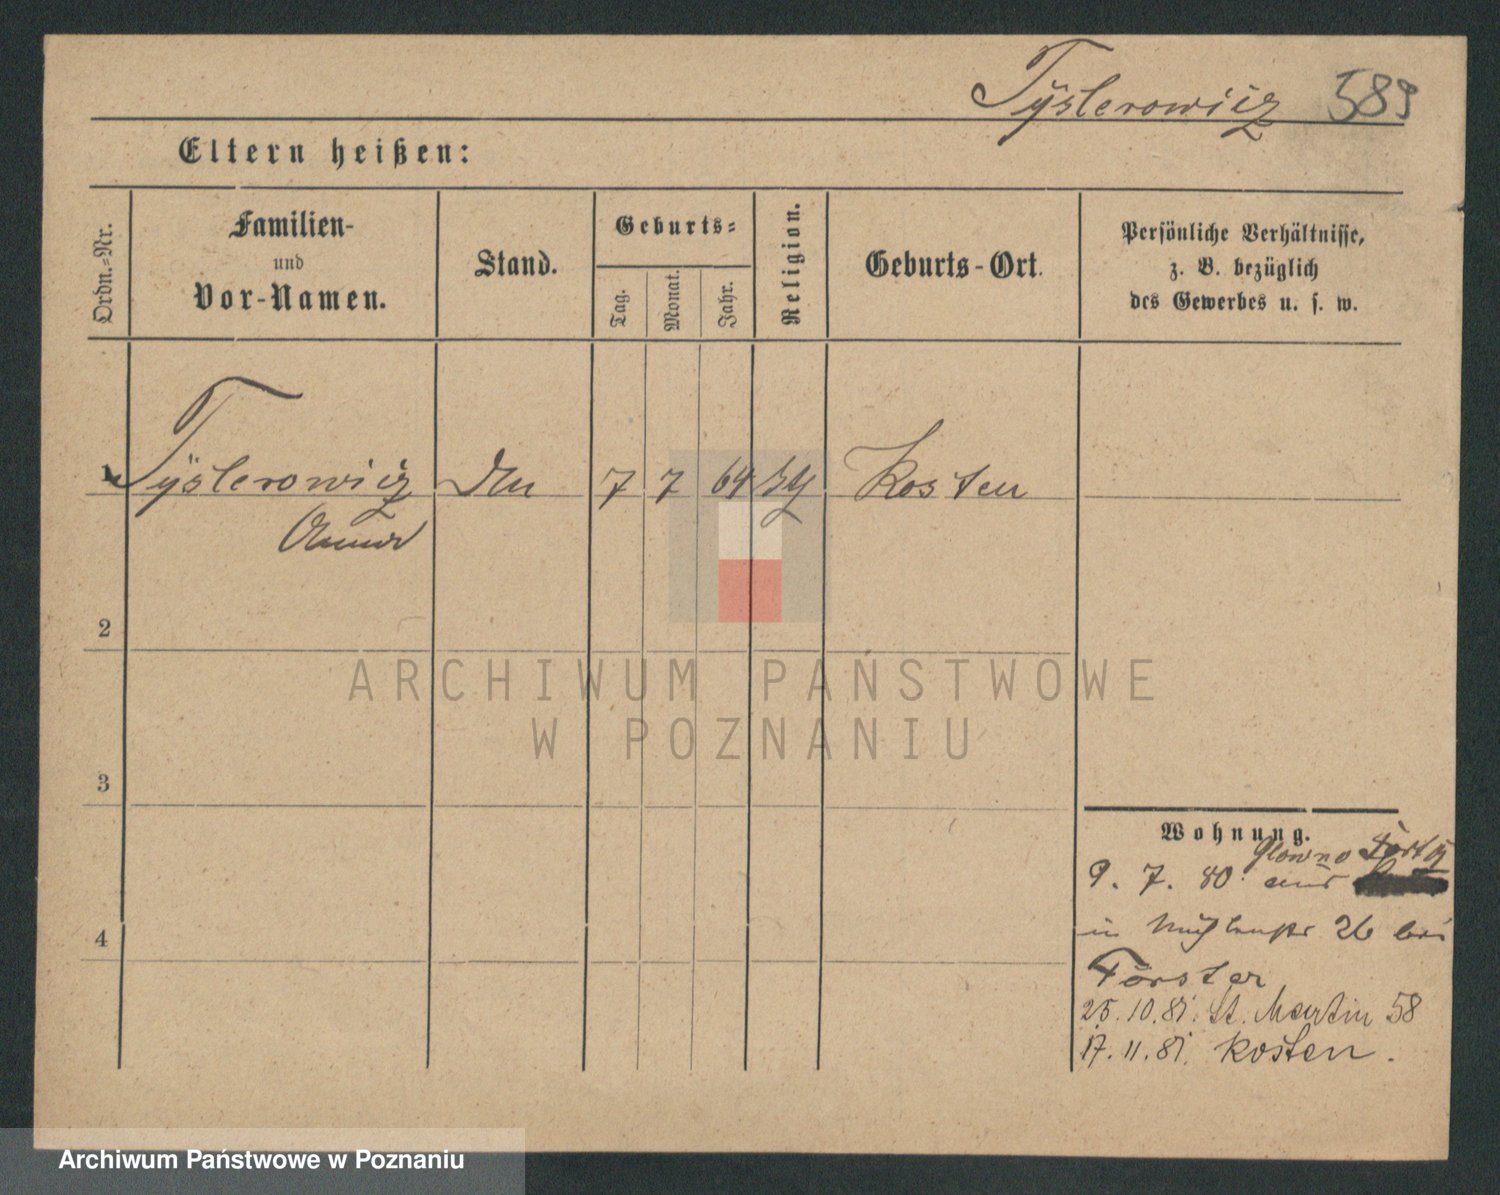 Tyslerowicz 589
Eltern heißen:
Ordn.-Nr.
Familien-
und
Vor-Namen.
Stand.
Geburts-
Tag.
Monat.
Jahr.
Religion.
Geburts-Ort.
Persönliche Verhältnisse,
z. B. bezüglich
des Gewerbes u. s. w.
1 Tyslerowicz 7 7 64 Kosten
2
3
4
ARCHIWUM PAŃSTWOWE
W POZNANIU
Wohnung.
Glowno
9. 7. 80 aus
in 26 bei
Förster
25. 10. 81. St. Martin 58
17. 11. 81. Kosten.
Archiwum Państwowe w Poznaniu